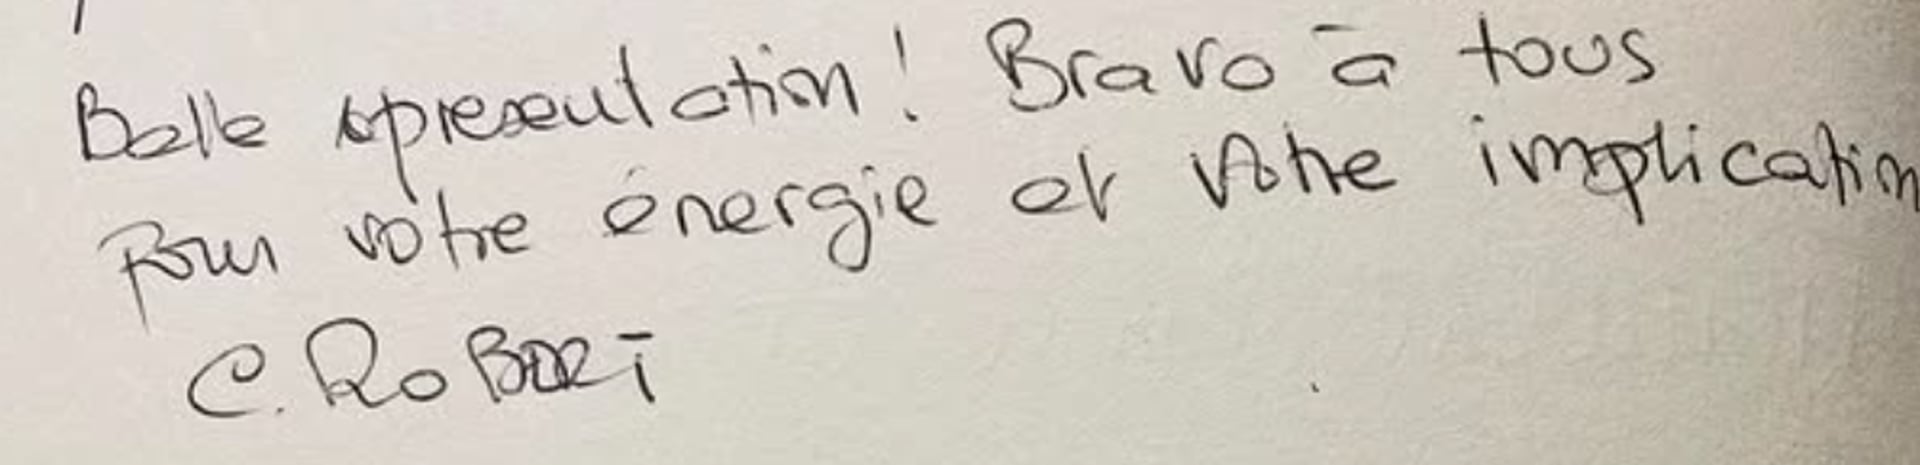 Belle presentation ! Bravo à tous
pour votre énergie et votre implication
C. ROBERT